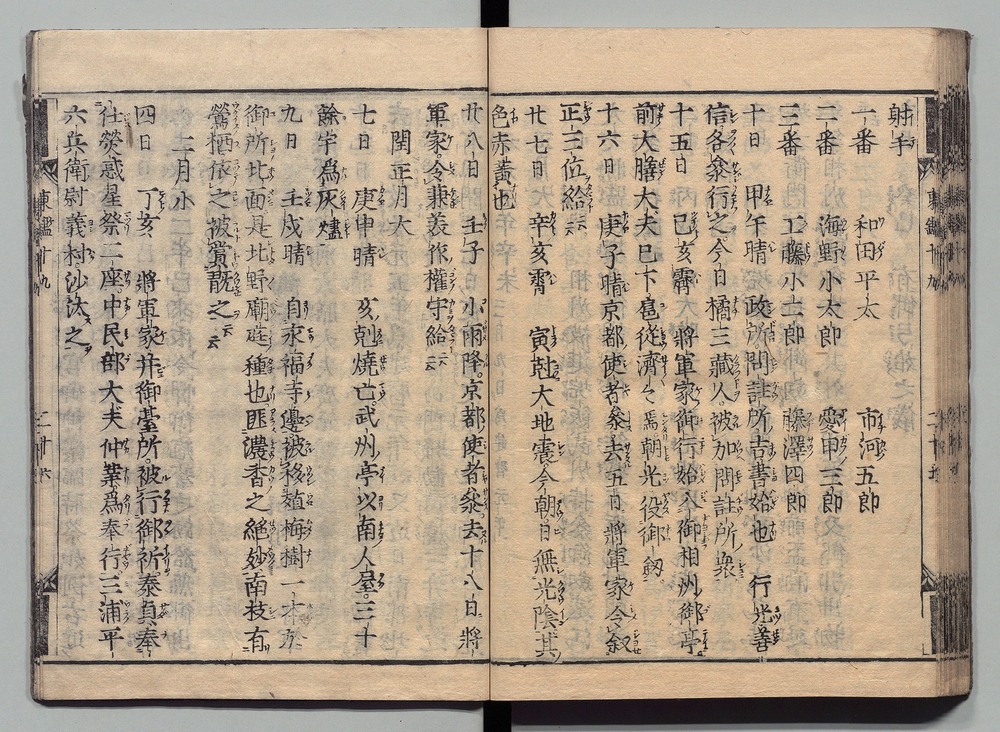 射手
一番 和田平太 市河五郎
二番 海野小太郎 愛甲三郎
三番 工藤小二郎 藤澤四郎
十日 甲午晴 政所問註所吉書始也 行光善
信各参行之今日橘三藏人被加問註所衆
十五日 己亥霽 將軍家御行始入御相州御亭
前大膳大夫已下扈從濟々焉朝光役御釼
十六日 庚子晴京都使者参去五日將軍家令叙
正三位給云云
廿七日 辛亥霽 寅尅大地震今朝日無光陰其
色赤黄也
廿八日 壬子日小雨降京都使者参去十八日將
軍家令兼美作權守給云云
閏正月大
七日 庚申晴 亥尅燒亡武州亭以南人屋三十
餘宇爲灰燼
九日 壬戌晴 自永福寺邊被移植梅樹一本於
御所北面是北野廟庭種也匪濃香之絶妙南枝有
鶯栖依之被賞翫之云云
二月小
四日 丁亥 將軍家并御臺所被行御祈泰貞奉
仕熒惑星祭二座中民部大夫仲業爲奉行三浦平
六兵衛尉義村沙汰之
東鑑十九